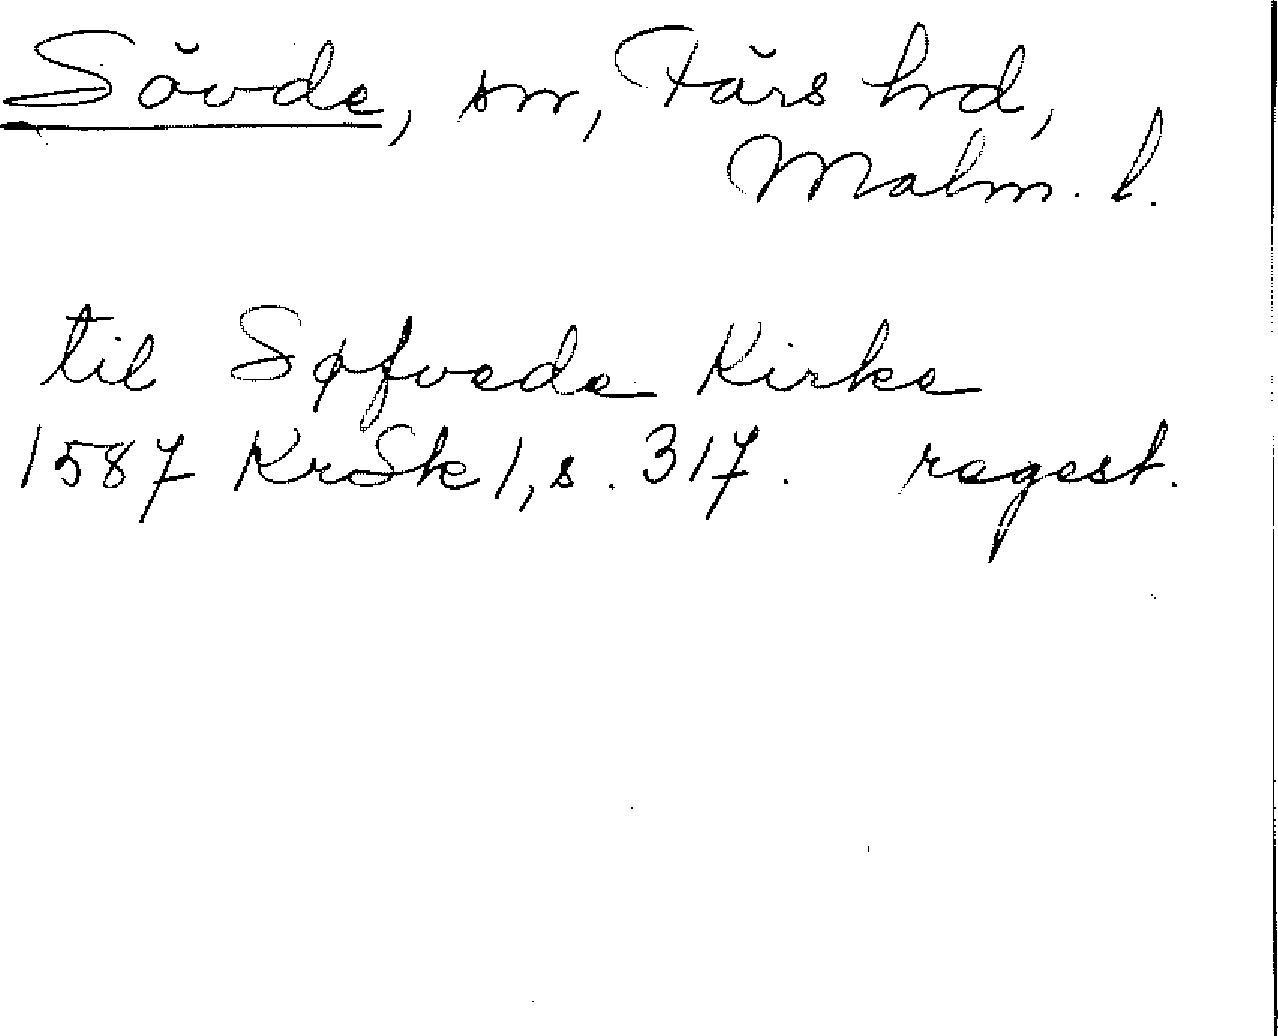 Sövde, sn, Färs hd,
Malm. l.
til Søfvede Kirke
1587 KrSk 1, s. 317. regest.